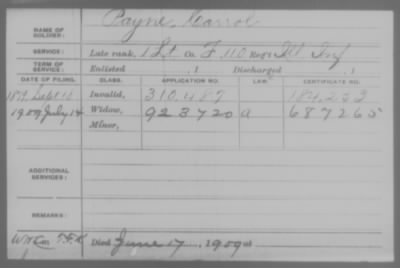 NAME OF SOLDIER: Payne Carrol
SERVICE: Late rank, 1 Lt Co. F, 110 Reg't Ill Inf
TERM OF SERVICE: Enlisted , 1 Discharged , 1
DATE OF FILING. CLASS. APPLICATION NO. LAW. CERTIFICATE NO.
1879 Sept 10 Invalid, 310.487 184.253
1909 July 14 Widow, 923720 a 687265
Minor,
ADDITIONAL SERVICES:
REMARKS:
Died June 17, 1909 at